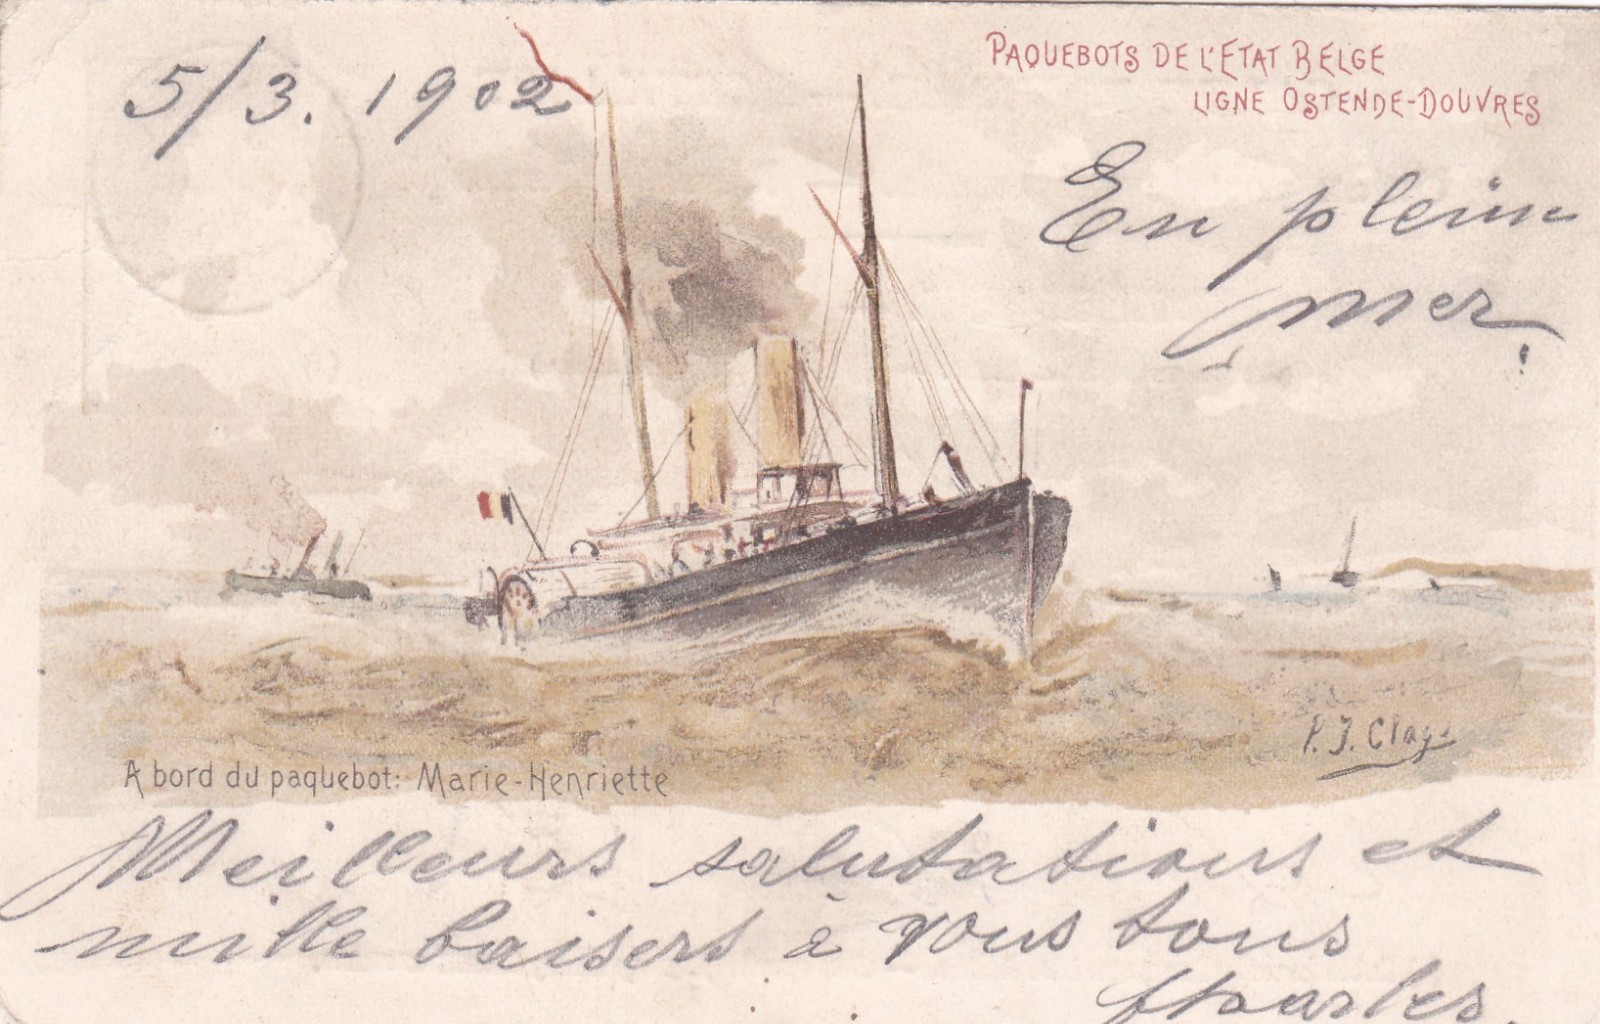 5/3. 1902
PAQUEBOTS DE L'ETAT BELGE
LIGNE OSTENDE-DOUVRES
En plein
mer!
P. J. Clays
A bord du paquebot: Marie-Henriette
Meilleurs salutations et
mille baisers à vous tous
Charles.